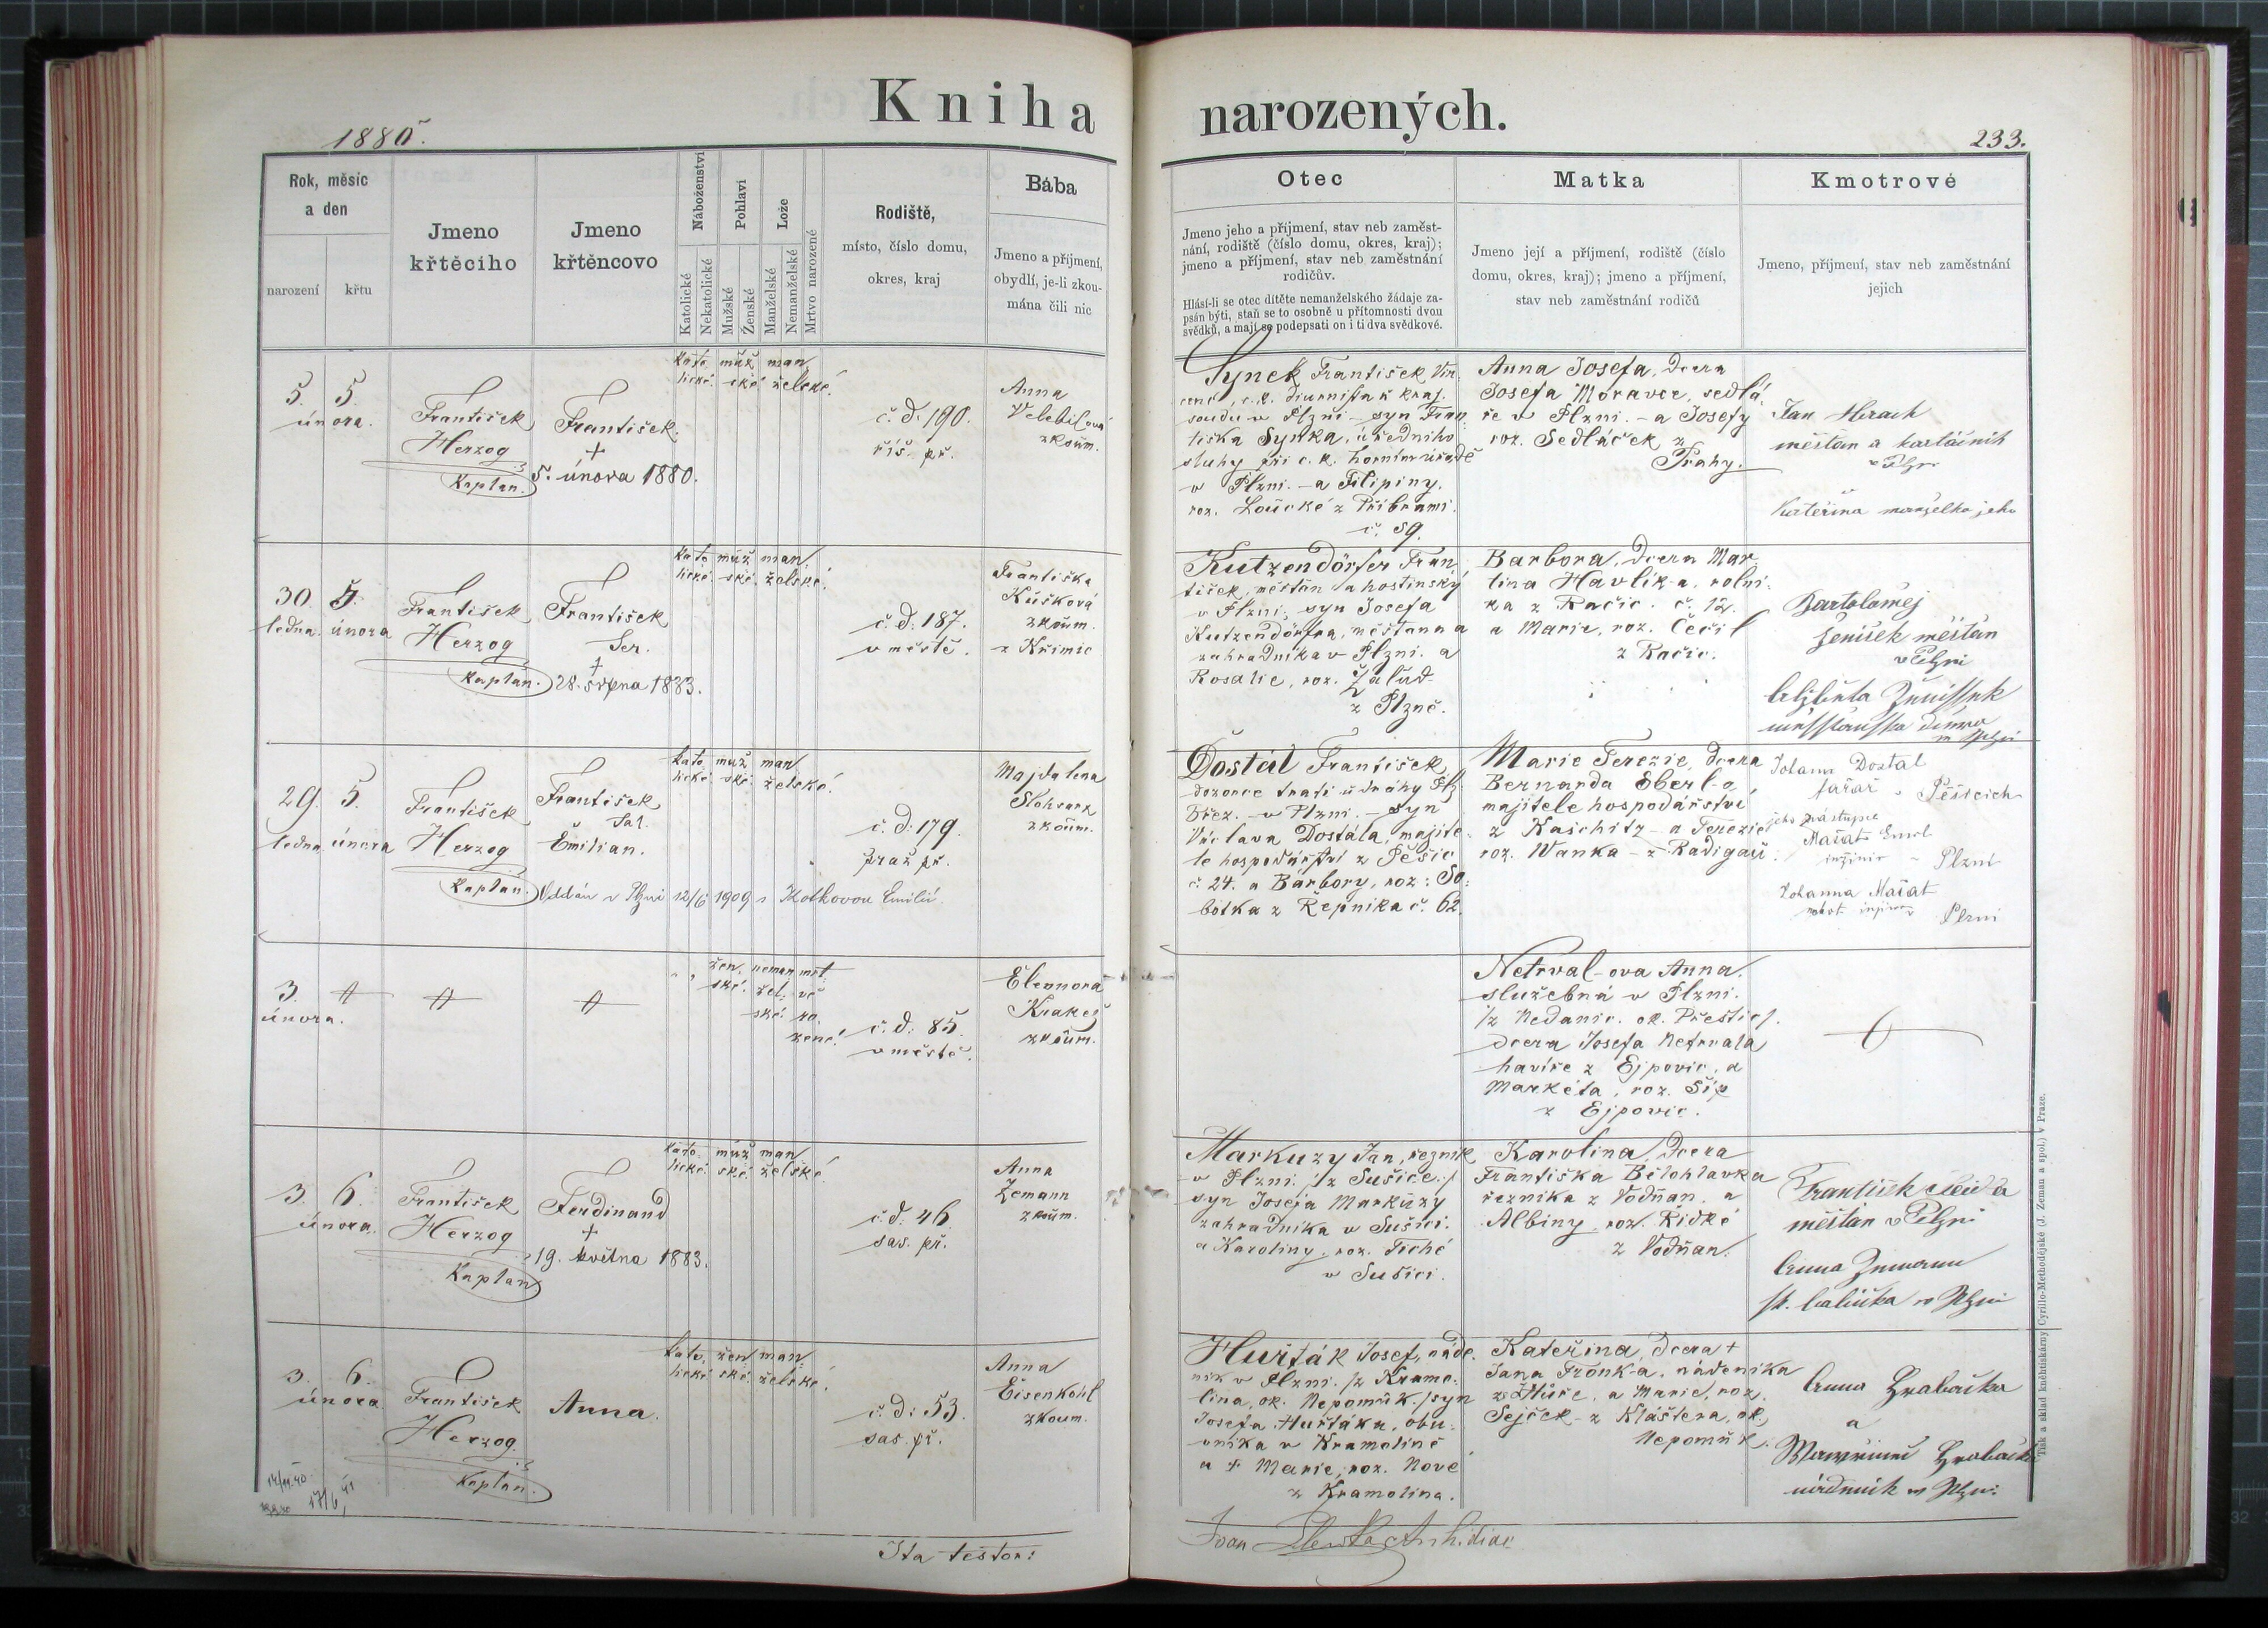 Kniha narozených.
1880.
233.
Rok, měsíc
a den
narození
křtu
Jmeno
křtěcího
Jmeno
křtěncovo
Náboženství
Katolické
Nekatolické
Pohlaví
Mužské
Ženské
Lože
Manželské
Nemanželské
Mrtvo narozené
Rodiště,
místo, číslo domu,
okres, kraj
Bába
Jmeno a příjmení,
obydlí, je-li zkou-
mána čili nic
Otec
Jmeno jeho a příjmení, stav neb zaměst-
nání, rodiště (číslo domu, okres, kraj);
jmeno a příjmení, stav neb zaměstnání
rodičův.
Hlásí-li se otec dítěte nemanželského žádaje za-
psán býti, staň se to osobně u přítomnosti dvou
svědků, a mají se podepsati on i ti dva svědkové.
Matka
Jmeno její a příjmení, rodiště (číslo
domu, okres, kraj); jmeno a příjmení,
stav neb zaměstnání rodičů
Kmotrové
Jmeno, příjmení, stav neb zaměstnání
jejich
5. 5.
února.
František
Herzog
Kaplan.
František
+
5. února 1880.
kato muž man
lické. ské. želské.
č. d. 190.
říš. př.
Anna
Velebilová
zkoum.
Synek František Vin.
cenc, c.k. diurnista k kraj.
soudu v Plzni. - syn Fran
tiska Synka, úředního
sluhy při c. k. horním úřadě
v Plzni. - a Filipiny.
roz. Loucké z Příbrami.
č. 59.
Anna Josefa, dcera
Josefa Moravce, sedlá
ře v Plzni. - a Josefy
roz. Sedláček z
Prahy.
Jan
měštan a kartáčník
v Plzni
Kateřina manželka jeho
30. 5.
ledna. února
František
Herzog
Kaplan.
František
Ser.
+
28. srpna 1883.
kato muž man
lické. ské. želské.
č. d. 187.
v městě.
Františka
Kůsková
zkoum.
z Křimic
Kutzendörfer Fran
tišek, měštan a hostinský
v Plzni, syn Josefa
Kutzendörfra, měštana a
zahradníka v Plzni. a
Rosalie, roz. Žalud
z Plzně.
Barbora, dcera Mar
tina Havlík-a, rolní.
ka z Račic. č. 12.
a Marie, roz. Čečil
z Račic.
Bartoloměj
Ženíšek měštan
v Plzni
29. 5.
ledna února
František
Herzog
Kaplan.
František
Sal.
Emilian.
Oddán v Plzni 12/6 1909 s Kotkovou Emilií.
kato muž man
lické ské želské.
č. d. 179.
praž. př.
Majdalena
Slohvarz
zkoum.
Dostál František
dozorce trati u dráhy Plz.
Břez. v Plzni. - syn
Václava Dostála, majite-
le hospodářství z Pěšic
č. 24. a Barbory, roz: So-
botka z Řepníka č. 62.
Marie Terezie, dcera
Bernarda Eberl-a
majitele hospodářství
z Kaschitz - a Terezie
roz. Wanka - z Radigau.
Johann Dostal
farář v
jeho zástupce
Mašat
inžinir v Plzni
Johanna Mašat
v Plzni
3.
února.
žen. neman mrt
ské. žel. vě
ské ro.
zené.
č. d: 85.
v městě.
Eleonora
Krakeš
zkoum.
Netrval-ova Anna.
služebná v Plzni.
/z Nedanic. ok. Přeštic/.
dcera Josefa Netrvala
havíře z Ejpovic, a
Markéta, roz. Šíp
z Ejpovic.
3. 6.
února.
František
Herzog
Kaplan
Ferdinand
+
19. května 1883.
kato muž man
lické ské želské
č. d: 46.
sas. př.
Anna
Zemann
zkoum.
Markuzy Jan, řezník
v Plzni. /z Sušice./
syn Josefa Markuzy
zahradníka v Sušici.
a Karoliny, roz. Tiché
v Sušici.
Karolina, dcera
Františka Bělohlavka
řezníka z Vodňan. a
Albiny, roz. Řídké
z Vodňan.
František
měštan v Plzni
Anna Zemann
3. 6.
února
František
Herzog.
Kaplan.
Anna.
kato žen man
lické ské želské
č. d: 53.
sas. př.
Anna
Eisenkohl
zkoum.
Hušťák Josef, náde-
ník v Plzni. /z Kramo-
lína, ok. Nepomuk./ syn
Josefa Hušťáka, obu-
vníka v Kramolíně
a + Marie, roz. Nové
z Kramolína.
Kateřina, dcera +
Jana Tronk-a, nádeníka
a Marie, roz.
Sejček - z Kláštera, ok.
Nepomuk.
Anna Hrabačka
a
17/6
Ita testor:
Tisk a sklad kněhtiskárny Cyrillo-Methodějské (J. Zeman a spol.) v Praze.